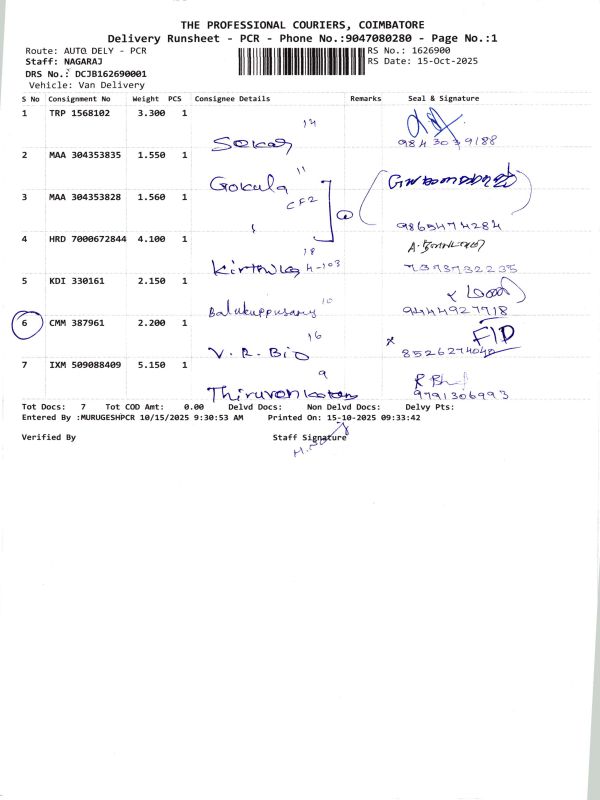 THE PROFESSIONAL COURIERS, COIMBATORE
Delivery Runsheet - PCR - Phone No.:9047080280 - Page No.:1
Route: AUTO DELY - PCR RS No.: 1626900
Staff: NAGARAJ RS Date: 15-Oct-2025
DRS No.: DCJB162690001
Vehicle: Van Delivery
S No Consignment No Weight PCS Consignee Details Remarks Seal & Signature
1 TRP 1568102 3.300 1
14
Sekar 9843039188
2 MAA 304353835 1.550 1
11
Gokula
3 MAA 304353828 1.560 1
CF2
9865474284
4 HRD 7000672844 4.100 1
18
H-103 7373732235
5 KDI 330161 2.150 1
10
Balukuppusamy 9444927718
6 CMM 387961 2.200 1
16 F/D
V.R. Bio
7 IXM 509088409 5.150 1
9
9791306993
Tot Docs: 7 Tot COD Amt: 0.00 Delvd Docs: Non Delvd Docs: Delvy Pts:
Entered By :MURUGESHPCR 10/15/2025 9:30:53 AM Printed On: 15-10-2025 09:33:42
Verified By Staff Signature